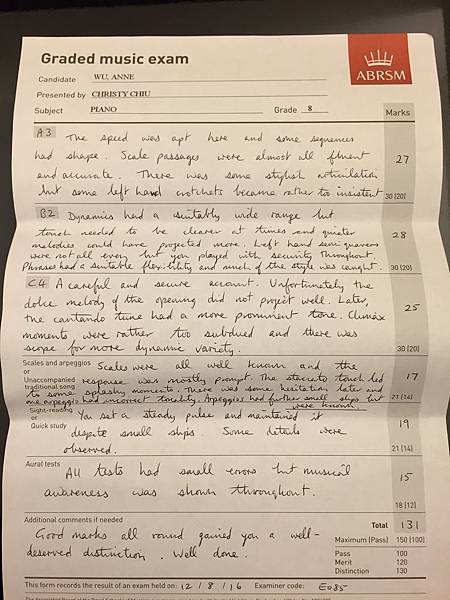 Graded music exam
ABRSM
Candidate WU, ANNE
Presented by CHRISTY CHIU
Subject PIANO Grade 8
Marks
A3 The speed was apt here and some sequences
had shape. Scale passages were almost all fluent
and accurate. There was some stylish articulation
but some left hand crotchets became rather too insistent
27
30 (20)
B2 Dynamics had a suitably wide range but
touch needed to be clearer at times and quieter
melodies could have projected more. Left hand semiquavers
were not all even but you played with security throughout.
Phrases had a suitable flexibility and much of the style was caught.
28
30 (20)
C4 A careful and secure account. Unfortunately the
dolce melody of the opening did not project well. Later,
the cantando tune had a more prominent tone. Climax
moments were rather too subdued and there was
scope for more dynamic variety.
25
30 (20)
Scales and arpeggios
or
Unaccompanied
traditional song
Scales were all well known and the
response was mostly prompt. The staccato touch led
to some splashy moments. There was some hesitation later and
one arpeggio had incorrect tonality. Arpeggios had further small slips but
were known.
17
21 (14)
Sight-reading
or
Quick study
You set a steady pulse and maintained it
despite small slips. Some details were
observed.
19
21 (14)
Aural tests
All tests had small errors but musical
awareness was shown throughout.
15
18 (12)
Additional comments if needed
Good marks all round gained you a well-
deserved distinction. Well done.
Total 131
Maximum (Pass) 150 (100)
Pass 100
Merit 120
Distinction 130
This form records the result of an exam held on: 12/8/16 Examiner code: E085